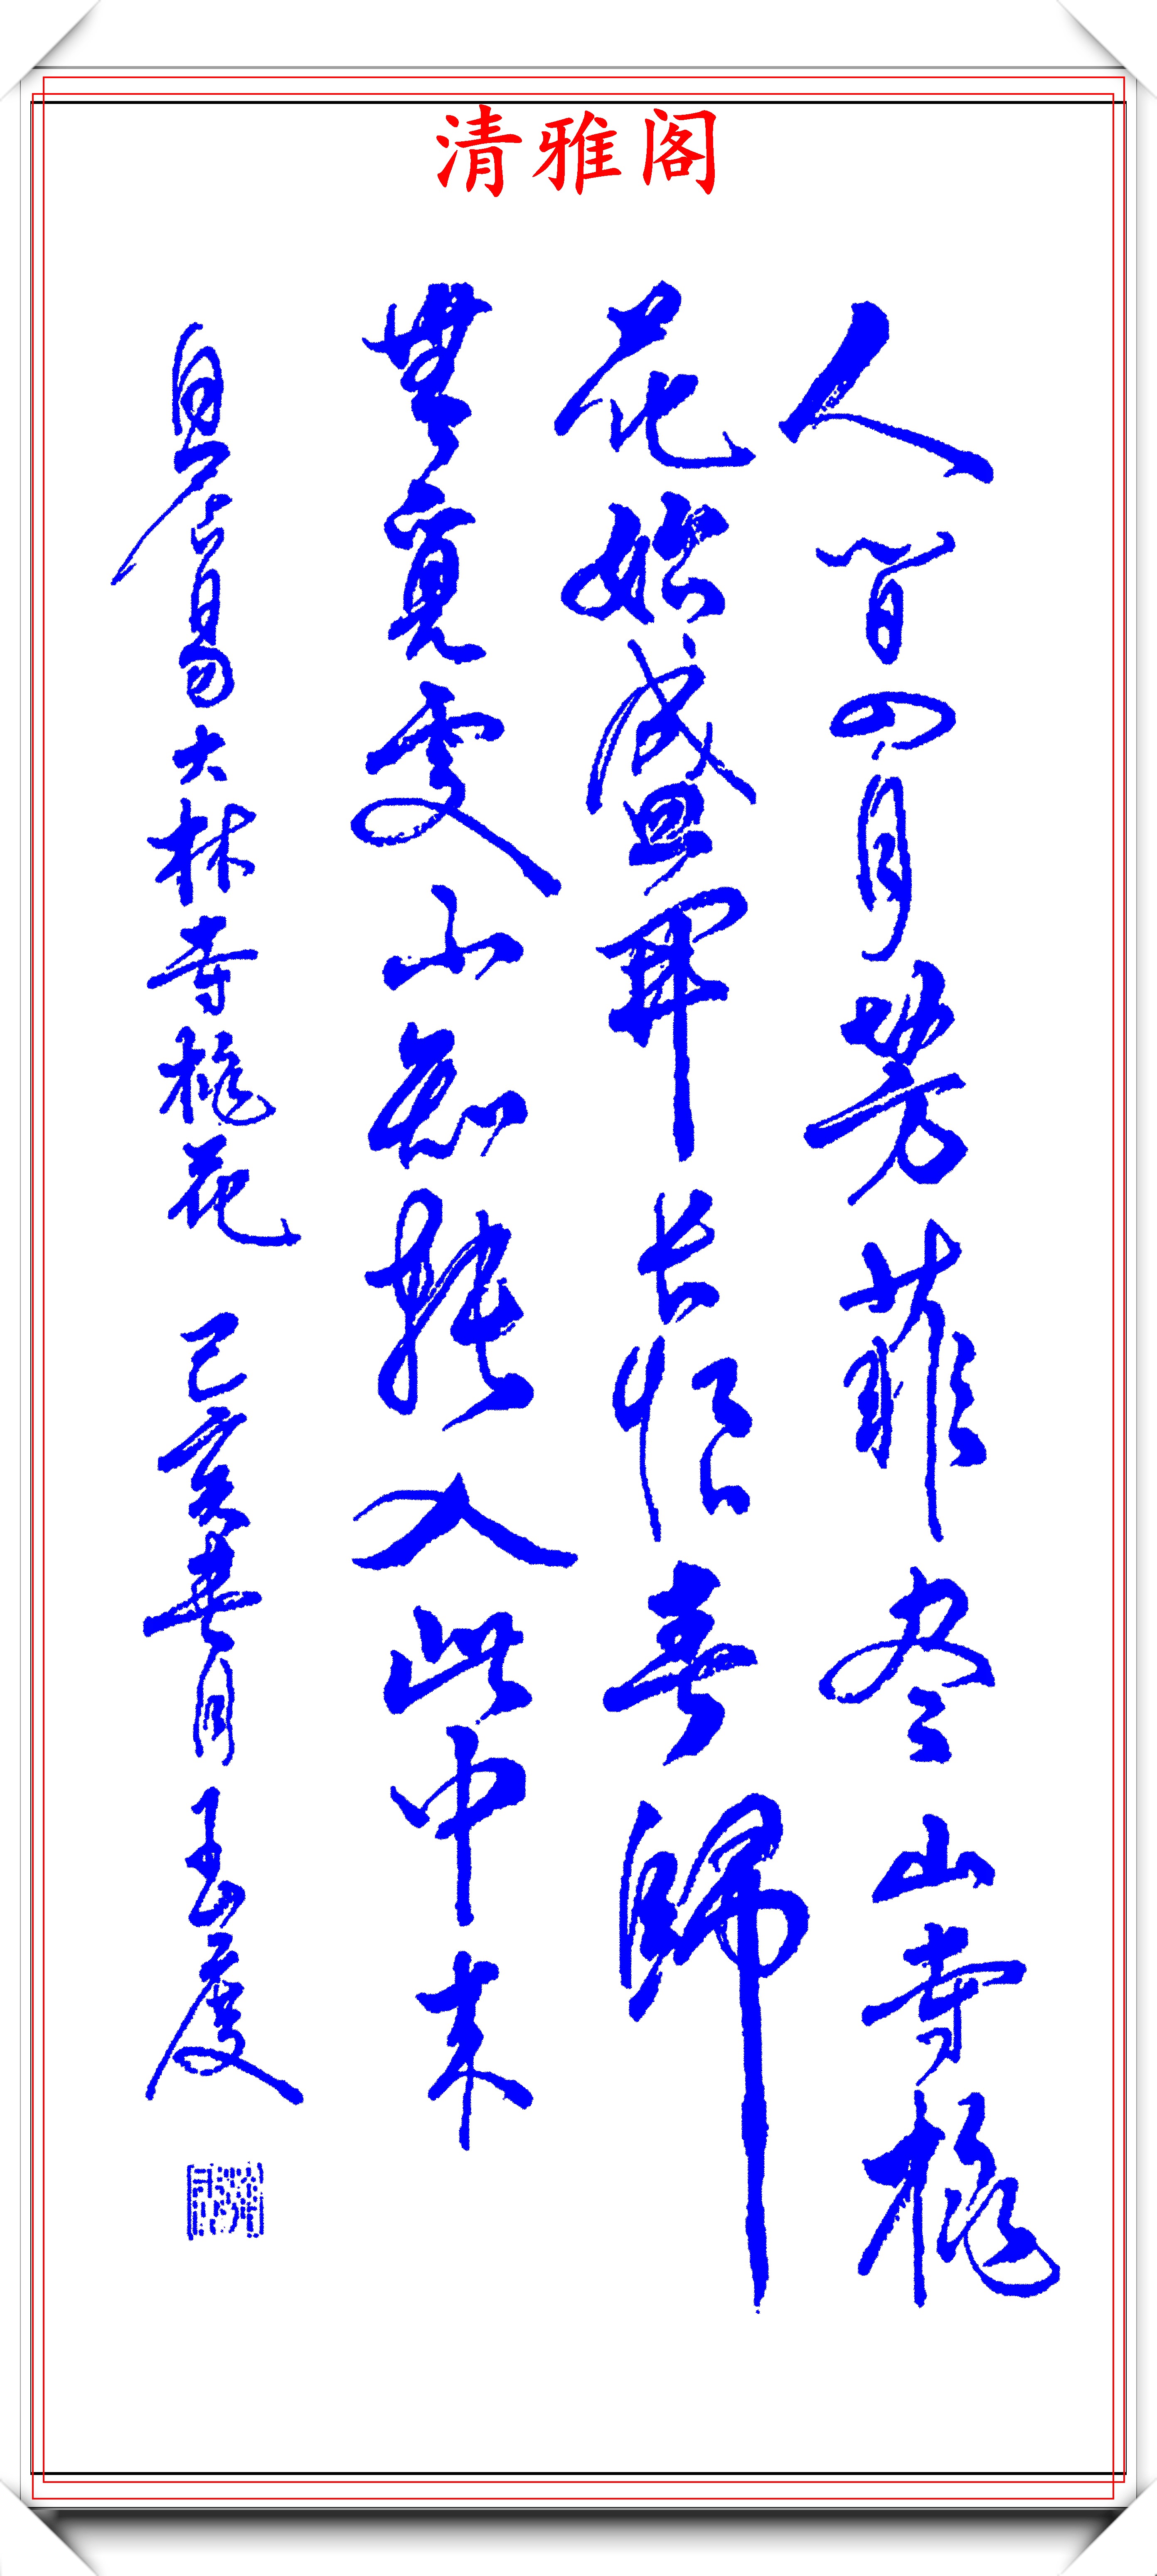 清雅阁
人间四月芳菲尽山寺桃
花始盛開长恨春歸
無覓处不知転入此中来
白居易大林寺桃花 己亥春月 玉度